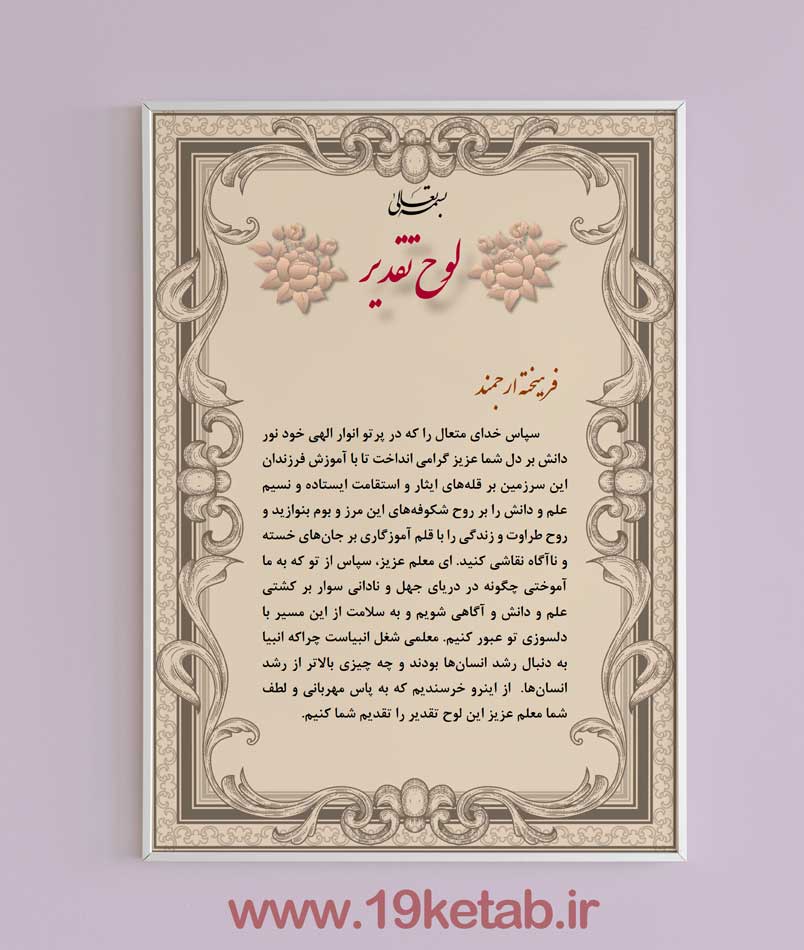 بسمه تعالی
لوح تقدیر
فرهیخته ارجمند
سپاس خدای متعال را که در پرتو انوار الهی خود نور
دانش بر دل شما عزیز گرامی انداخت تا با آموزش فرزندان
این سرزمین بر قله‌های ایثار و استقامت ایستاده و نسیم
علم و دانش را بر روح شکوفه‌های این مرز و بوم بنوازید و
روح طراوت و زندگی را با قلم آموزگاری بر جان‌های خسته
و ناآگاه نقاشی کنید. ای معلم عزیز، سپاس از تو که به ما
آموختی چگونه در دریای جهل و نادانی سوار بر کشتی
علم و دانش و آگاهی شویم و به سلامت از این مسیر با
دلسوزی تو عبور کنیم. معلمی شغل انبیاست چراکه انبیا
به دنبال رشد انسان‌ها بودند و چه چیزی بالاتر از رشد
انسان‌ها. از اینرو خرسندیم که به پاس مهربانی و لطف
شما معلم عزیز این لوح تقدیر را تقدیم شما کنیم.
www.19ketab.ir